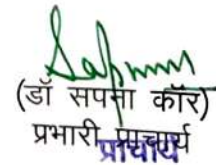 (डॉ सपना कॉर)
प्रभारी प्राचार्य
प्राचार्य